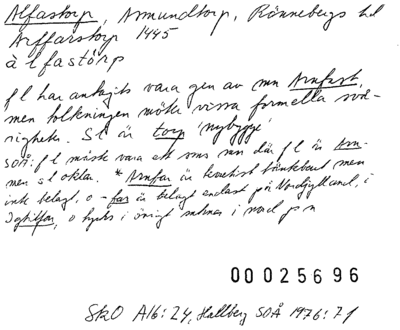 Alfastorp, Asmundtorp, Rönnebergs hd
Arffarstorp 1445
à lfastörp
fl har antagits vara gen av mn Arnfast,
men tolkningen möter vissa formella svå-
righeter. Sl är torp 'nybygge'
SOÅ: fl måste vara ett sms mn där fl är Arn-
men sl oklar. * Arnfar är teoretiskt tänkbart men
inte belagt, o -far är belagt endast på Nordjylland, i
o tycks i övrigt saknas i nord p n
00025696
SkO A16:24, Hallberg SOÅ 1976:71